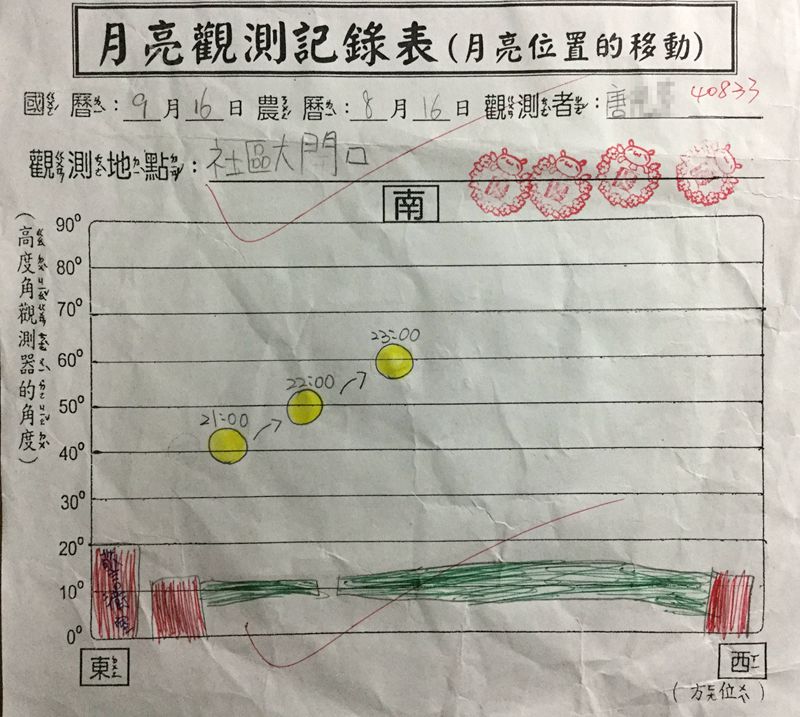 月亮觀測記錄表(月亮位置的移動)
國曆:9月16日農曆:8月16日觀測者:唐 40833
觀測地點:社區大門口
南
(高度角觀測器的角度)
90°
80°
70°
60°
50°
40°
30°
20°
10°
0°
23:00
22:00
21:00
東
西
(方位)